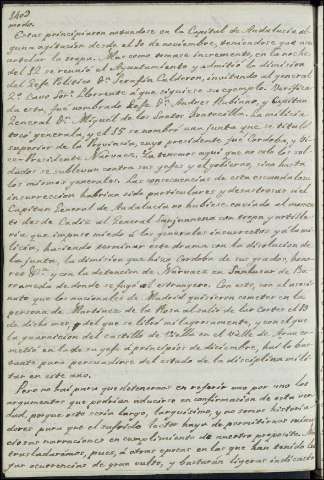 modo.
Estas principiaron notandose en la Capital de Andalucia al-
guna agitacion desde el 10 de noviembre, teniendose que a-
cuartelar la tropa. Mas como tomase incremento, en la noche
del 12 se reunió el Ayuntamiento y admitió la dimision
del Jefe Politico D. Serafin Calderon, invitando al general
2º Cavo Sor. Llorente á que siguiese su egemplo. Verifica-
da esta, fue nombrado Jefe D. Andres Rubiano, y Capitan
General D. Miguel de los Santos Bontecilla. La milicia
tocó generala, y el 15 se nombró una junta que se tituló
superior de la Provincia, cuyo presidente fue Cordoba, y Vi-
ce-Presidente Narvaez. Ya tenemos aqui que no solo los sol-
dados se sublevan contra sus gefes y el gobierno, sino hasta
los mismos generales. Las consecuencias de esta escandalosa
insurreccion hubieran sido particulares y desastrosas si el
Capitan General de Andalucia no hubiese enviado al momen-
to desde Cadiz al General Sanjuanena con tropa y artille-
ria que impuso miedo á los generales insurrectos y á la mi-
licia, haciendo terminar este drama con la disolucion de
la junta, la dimision que hizo Cordoba de sus grados, hono-
res &a. y con la detencion de Narvaez en Sanlucar de Ba-
rrameda de donde se fugó al estrangero. Con esto, con el asesi-
nato que los nacionales de Madrid quisieron cometer en la
persona de Martinez de la Rosa al salir de las Cortes el 13
de dicho mes, y del que se libró milagrosamente, y con el que
la guarnicion del castillo de Valls en el Valle de Aran co-
metió en la de su gefe á principios de diciembre, hai lo bas-
tante para persuadirse del estado de la disciplina mili-
tar en este año.
Pero no hai para que detenernos en referir uno por uno los
argumentos que podrian aducirse en confirmacion de esta ver-
dad, porque esto seria largo, larguisimo, y no somos historia-
dores para que el sufrido lector haya de permitirnos minu-
ciosas narraciones en cumplimiento de nuestro proposito. Nos
trasladarémos, pues, á otras epocas en las que han tenido lu-
gar ocurrencias de gran vulto, y bastarán ligeras indicacio-